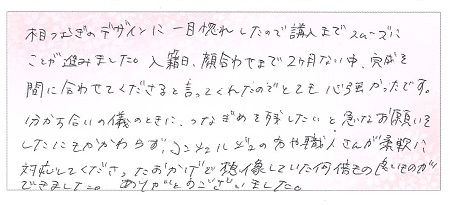 相つむぎのデザインに一目惚れしたので購入までスムーズに
ことが進みました。入籍日、顔合わせまで2ヶ月ない中、完成を
間に合わせてくださると言ってくれたのでとても心強かったです。
分かち合いの儀のときに、つなぎめを残したいと急なお願いを
したにもかかわらず、コンシェルジュの方や職人さんが柔軟に
対応してくださったおかげで想像していた何倍もの良いものが
できました。ありがとうございました。